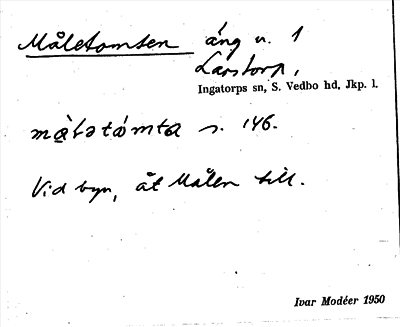 Måletomten äng n. 1
Larstorp,
Ingatorps sn, S. Vedbo hd, Jkp. l.
s. 146.
Vid byn, åt Målen till.
Ivar Modéer 1950